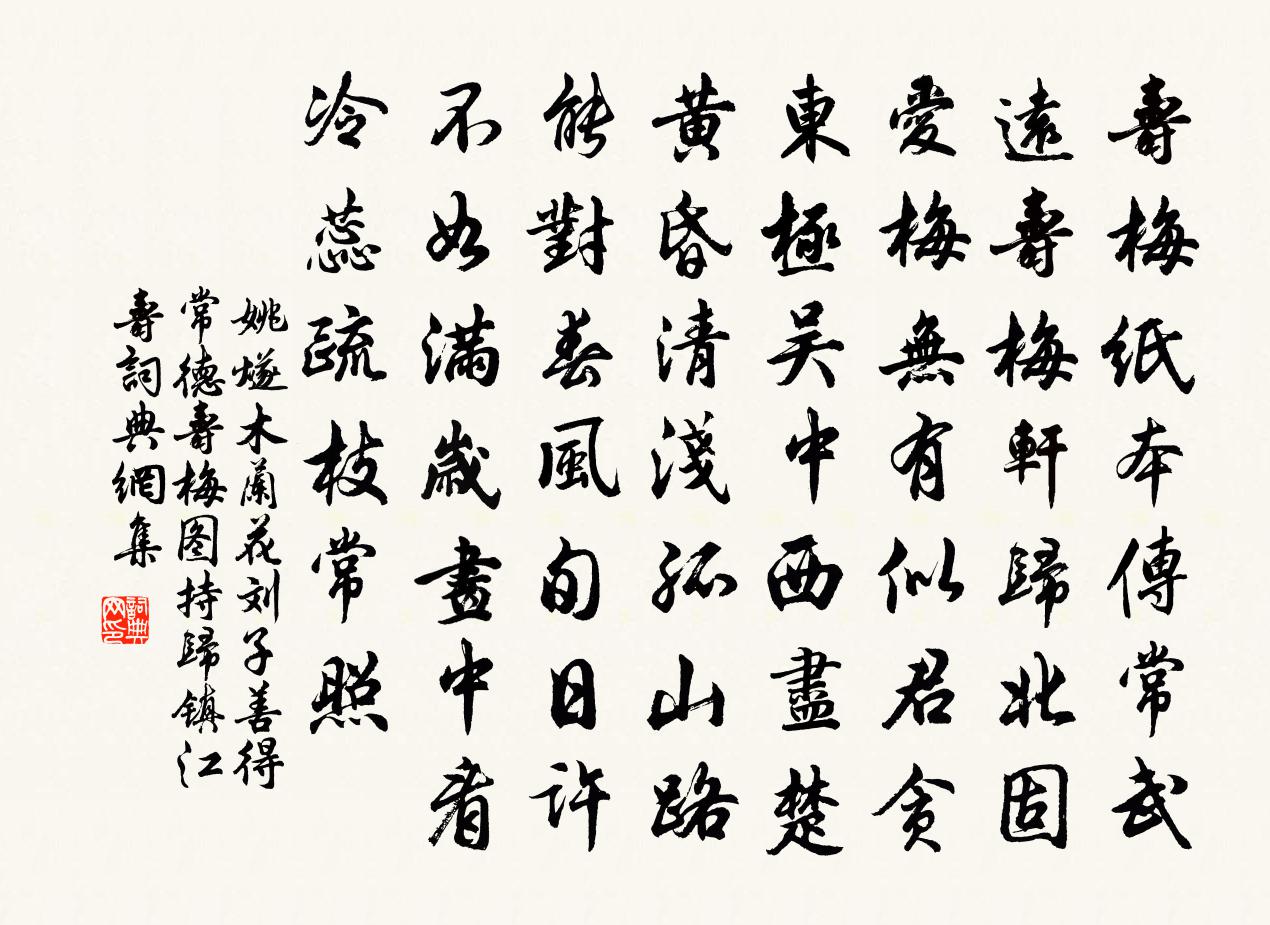 壽梅紙本傳常武
遠壽梅軒歸北固
愛梅無有似君貪
東極吴中西盡楚
黄昏清淺孤山路
能對春風旬日許
不如滿歲畫中看
冷蕊疏枝常照
姚燧木蘭花刘子善得
常德壽梅图持歸镇江
壽詞典網集
詞典
网印